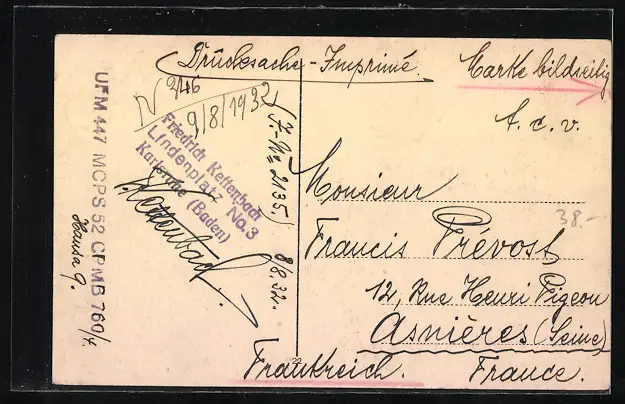 Drucksache - Imprimé.
Marke bildseitig
t. c. v.
N 946
9/8/1932
Friedrich Kettenbach
Lindenplatz No. 3
Karlsruhe (Baden)
Kettenbach.
8/8 32.
UFM 447 MCPS 52 CPMB 760/4
Hansa 9.
Monsieur
Francis Prévost
12, Rue Henri Pigeon
Asnières (Seine)
Frankreich. France.
38.-
22